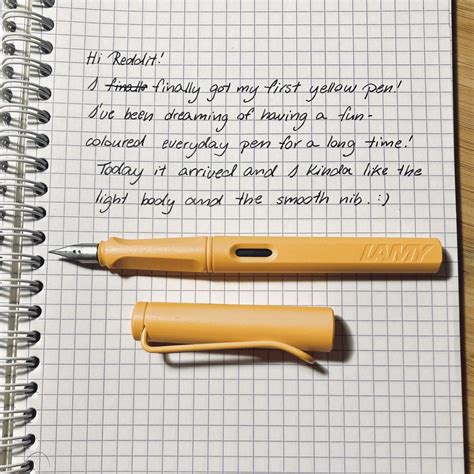 Hi Reddit!
I finally finally got my first yellow pen!
I've been dreaming of having a fun-
coloured everyday pen for a long time!
Today it arrived and I kinda like the
light body and the smooth nib. :)
LAMY